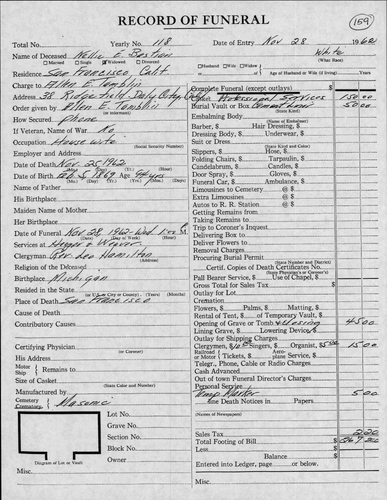 RECORD OF FUNERAL
159
Total No. Yearly No. 118 Date of Entry Nov 28 1962
Name of Deceased Nellie E White
(What Race)
Married Single Widowed Divorced
Husband Widow
Residence San Francisco Calif
Age of Husband or Wife (if living) Years
Charge to Allen E. Tamblin
Address 38 Ridgefield, Daly City, Calif
Order given by Allen E. Tamblin
(or informant)
How Secured Phone
If Veteran, of War No
Occupation House wife
(Social Security Number)
Employer and Address
Date of Death Nov. 25 1962
Date of Birth Feb 5 1869 Age 93 years
Name of Father
His Birthplace
Maiden Name of Mother
Her Birthplace
Date of Funeral Nov 28, 1962 Wed 1:00 P.
Services at
Clergyman Rev. Leo Hamilton
(Address)
Religion of the Deceased
Birthplace Michigan
Resided in the State
(or U.S., City or County) (Years) (Months)
Place of Death San Francisco
Cause of Death
Contributory Causes
Certifying Physician
(or Coroner)
His Address
Motor
Ship Remains to
Size of Casket
(State Color and Number)
Manufactured by
Cemetery
Crematory Masonic
Lot No.
Grave No.
Section No.
Block No.
Owner
Diagram of Lot or Vault
Misc.
Complete Funeral (except outlays) $
Professional Services 150 00
Burial Vault or Box 50 00
(State Kind)
Embalming Body
(Name of Embalmer)
Barber, $ Hair Dressing, $
Dressing Body, $ Underwear, $
Suit or Dress
(State Kind and Color)
Slippers, $ Hose, $
Folding Chairs, $ Tarpaulin, $
Candelabrum, $ Candles, $
Door Spray, $ Gloves, $
Funeral Car, $ Ambulance, $
Limousines to Cemetery @ $
Extra Limousines @ $
Autos to R. R. Station @ $
Getting Remains from
Taking Remains to
Trip to Coroner's Inquest
Delivering Box to
Deliver Flowers to
Removal Charges
Procuring Burial Permit
(State Number and District)
Certif. Copies of Death Certificates No.
(State Physician's or Coroner's)
Pall Bearer Service, $ Use of Chapel, $
Gross Total for Sales Tax $
Outlay for Lot
Cremation
Flowers, $ Palms, $ Matting, $
Rental of Tent, $ of Temporary Vault, $
Opening of Grave or Tomb & closing 45 00
Lining Grave, $ Lowering Device, $
Outlay for Shipping Charges
Clergyman, $10.00 Singers, $ Organist, $5.00 15 00
Railroad or Motor $ Tickets, $ Aeroplane Service, $
Telegr., Phone, Cable or Radio Charges
Cash Advanced
Out of town Funeral Director's Charges
Personal Service
Temp Marker 5 00
line Death Notices in Papers
(Names of Newspapers)
Sales Tax 2 20
Total Footing of Bill $ 267 20
Less
Balance $
Entered into Ledger, page or below.
Misc.